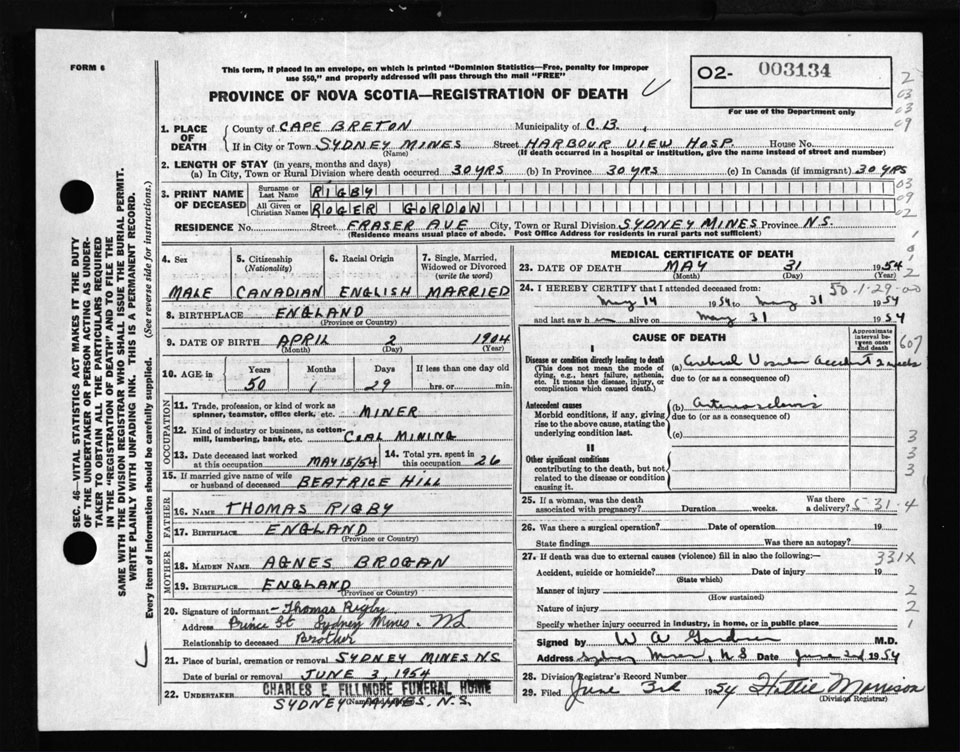 FORM 6
This form, if placed in an envelope, on which is printed "Dominion Statistics—Free, penalty for improper
use $50," and properly addressed will pass through the mail "FREE"
PROVINCE OF NOVA SCOTIA—REGISTRATION OF DEATH
02- 003134
For use of the Department only
2
03
03
09
1. PLACE OF DEATH
County of CAPE BRETON Municipality of C.B.
If in City or Town SYDNEY MINES Street HARBOUR VIEW HOSP. House No.
(Name) (If death occurred in a hospital or institution, give the name instead of street and number)
2. LENGTH OF STAY (in years, months and days)
(a) In City, Town or Rural Division where death occurred 30 YRS (b) In Province 30 YRS (c) In Canada (if immigrant) 30 YRS
3. PRINT NAME OF DECEASED
Surname or Last Name RIGBY
All Given or Christian Names ROGER GORDON
03
09
02
RESIDENCE No. Street FRASER AVE City, Town or Rural Division SYDNEY MINES Province N.S.
(Residence means usual place of abode. Post Office Address for residents in rural parts not sufficient)
SEC. 46—VITAL STATISTICS ACT MAKES IT THE DUTY
OF THE UNDERTAKER OR PERSON ACTING AS UNDER-
TAKER TO OBTAIN ALL THE PARTICULARS REQUIRED
IN THE "REGISTRATION OF DEATH" AND TO FILE THE
SAME WITH THE DIVISION REGISTRAR WHO SHALL ISSUE THE BURIAL PERMIT.
WRITE PLAINLY WITH UNFADING INK. THIS IS A PERMANENT RECORD.
Every item of information should be carefully supplied. (See reverse side for instructions.)
4. Sex
MALE
5. Citizenship (Nationality)
CANADIAN
6. Racial Origin
ENGLISH
7. Single, Married, Widowed or Divorced (write the word)
MARRIED
8. BIRTHPLACE ENGLAND
(Province or Country)
9. DATE OF BIRTH APRIL 2 1904
(Month) (Day) (Year)
10. AGE in Years Months Days If less than one day old
50 1 29 hrs. or min.
OCCUPATION
11. Trade, profession, or kind of work as
spinner, teamster, office clerk, etc. MINER
12. Kind of industry or business, as cotton-
mill, lumbering, bank, etc. COAL MINING
13. Date deceased last worked at this occupation MAY 15/54
14. Total yrs. spent in this occupation 26
15. If married give name of wife
or husband of deceased BEATRICE HILL
FATHER
16. NAME THOMAS RIGBY
17. BIRTHPLACE ENGLAND
(Province or Country)
MOTHER
18. MAIDEN NAME AGNES BROGAN
19. BIRTHPLACE ENGLAND
(Province or Country)
20. Signature of informant Thomas Rigby
Address Prince St Sydney Mines. NS
Relationship to deceased Brother
21. Place of burial, cremation or removal SYDNEY MINES N.S.
Date of burial or removal JUNE 3, 1954
22. UNDERTAKER CHARLES E. FILLMORE FUNERAL HOME
(Name and Address)
SYDNEY MINES, N.S.
MEDICAL CERTIFICATE OF DEATH
23. DATE OF DEATH MAY 31 1954
(Month) (Day)
24. I HEREBY CERTIFY that I attended deceased from: 50-1-29-00
May 14 1954 to May 31 1954
and last saw him alive on May 31 1954
CAUSE OF DEATH
Approximate interval between onset and death
607
I
Disease or condition directly leading to death
(This does not mean the mode of
dying, e.g., heart failure, asthenia,
etc. It means the disease, injury, or
complication which caused death.)
(a) Cerebral Vascular Accident 2 weeks
due to (or as a consequence of)
Antecedent causes
Morbid conditions, if any, giving
rise to the above cause, stating the
underlying condition last.
(b) Arteriosclerosis
due to (or as a consequence of)
(c)
II
Other significant conditions
contributing to the death, but not
related to the disease or condition
causing it.
3
3
3
25. If a woman, was the death
associated with pregnancy? Duration weeks. Was there a delivery?
5-31-4
26. Was there a surgical operation? Date of operation 19
State findings Was there an autopsy?
27. If death was due to external causes (violence) fill in also the following:—
331X
Accident, suicide or homicide? Date of injury 19
(State which)
Manner of injury
(How sustained)
Nature of injury
Specify whether injury occurred in industry, in home, or in public place
2
2
2
1
Signed by W A Gardner M.D.
Address Sydney Mines, N S Date June 3rd 1954
28. Division Registrar's Record Number
29. Filed June 3rd 1954 Hattie Morrison
(Division Registrar)